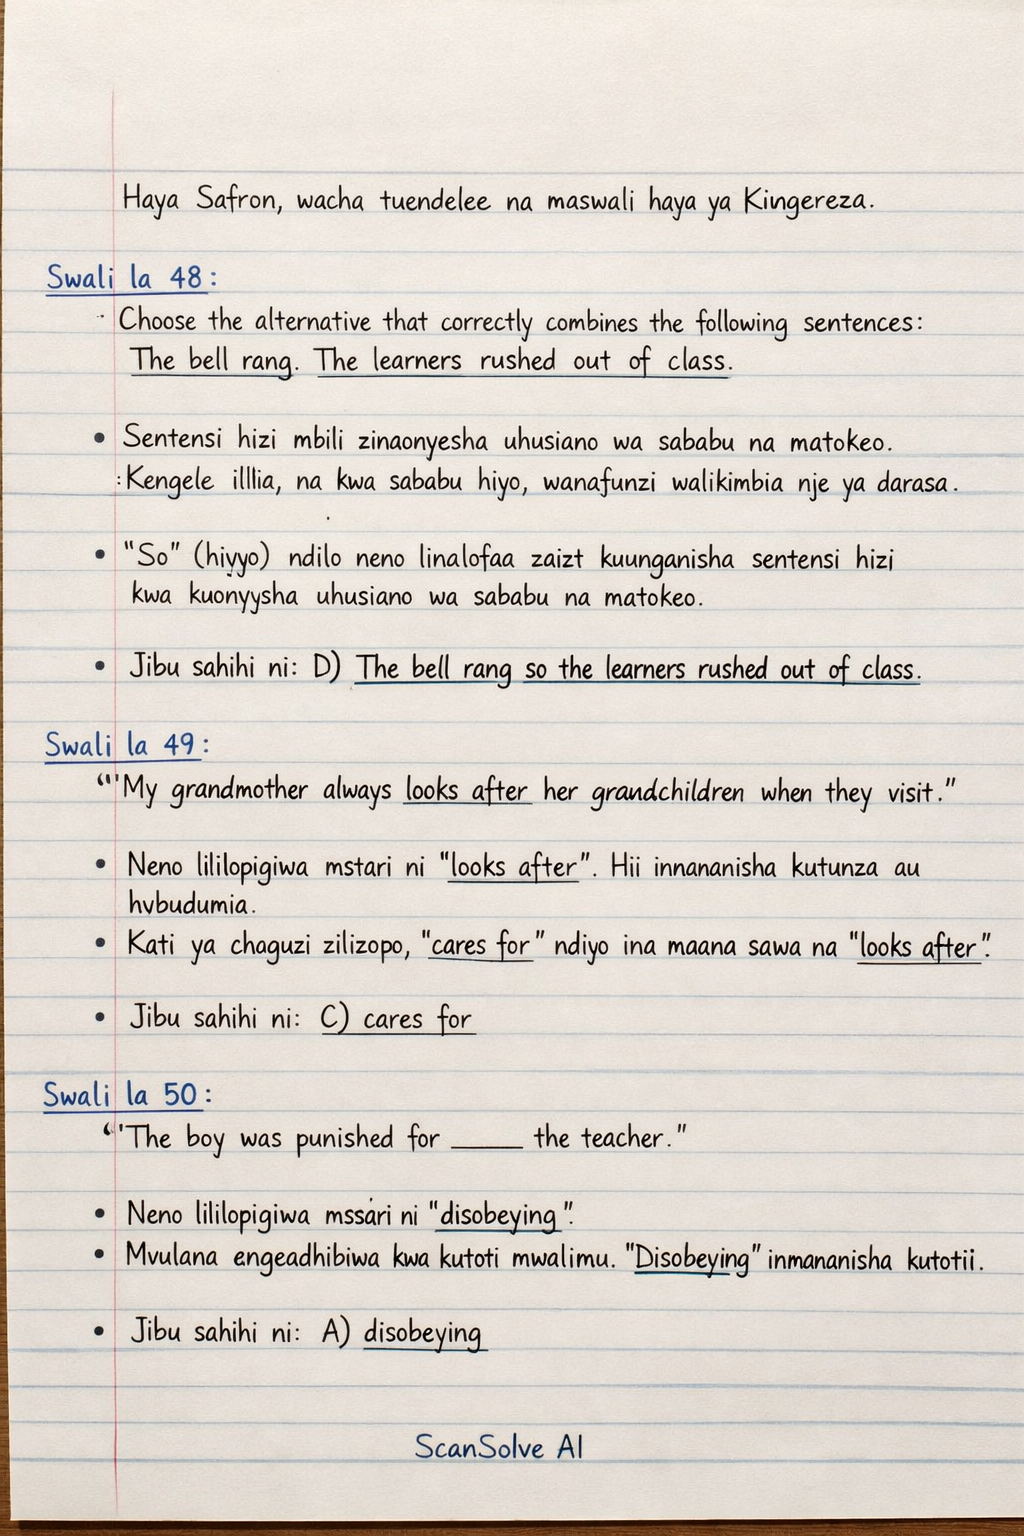 Haya Safron, wacha tuendelee na maswali haya ya Kingereza.
Swali la 48:
Choose the alternative that correctly combines the following sentences:
The bell rang. The learners rushed out of class.
• Sentensi hizi mbili zinaonyesha uhusiano wa sababu na matokeo.
:Kengele illlia, na kwa sababu hiyo, wanafunzi walikimbia nje ya darasa.
• "So" (hiyyo) ndilo neno linalofaa zaizt kuunganisha sentensi hizi
kwa kuonyysha uhusiano wa sababu na matokeo.
• Jibu sahihi ni: D) The bell rang so the learners rushed out of class.
Swali la 49:
"'My grandmother always looks after her grandchildren when they visit."
• Neno lililopigiwa mstari ni "looks after". Hii innananisha kutunza au
hvbudumia.
• Kati ya chaguzi zilizopo, "cares for" ndiyo ina maana sawa na "looks after".
• Jibu sahihi ni: C) cares for
Swali la 50:
"'The boy was punished for _____ the teacher."
• Neno lililopigiwa mssari ni "disobeying".
• Mvulana engeadhibiwa kwa kutoti mwalimu. "Disobeying" inmananisha kutotii.
• Jibu sahihi ni: A) disobeying
ScanSolve AI